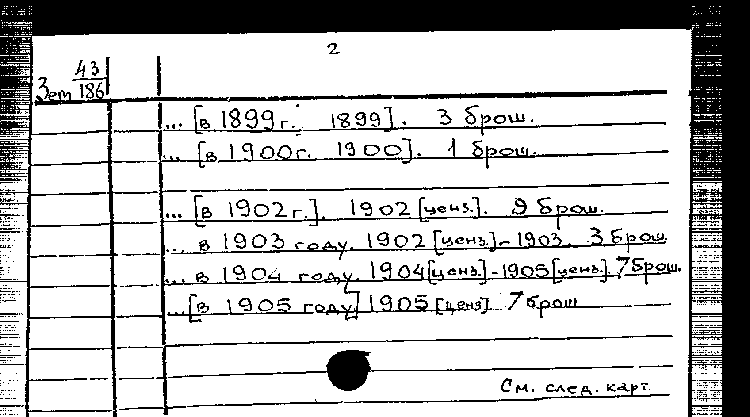 2
43
Зет 186
... [в 1899г. 1899]. 3 брош.
... [в 1900г. 1900]. 1 брош.
... [в 1902г.]. 1902 [ценз.]. 9 брош.
... в 1903 году. 1902 [ценз.] - 1903. 3 брош.
... в 1904 году. 1904 [ценз.] - 1905 [ценз.] 7 брош.
... [в 1905 году] 1905 [ценз] 7 брош
См. след. карт.